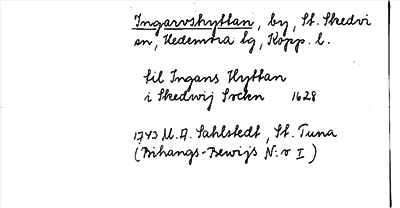 Ingarvshyttan, by, St. Skedvi
sn, Hedemora tg, Kopp. l.
til Ingans Hyttan
i Skedwij Sockn 1628
1743 M. A. Sahlstedt, St. Tuna
(Bihangs-Bewijs N:o I)